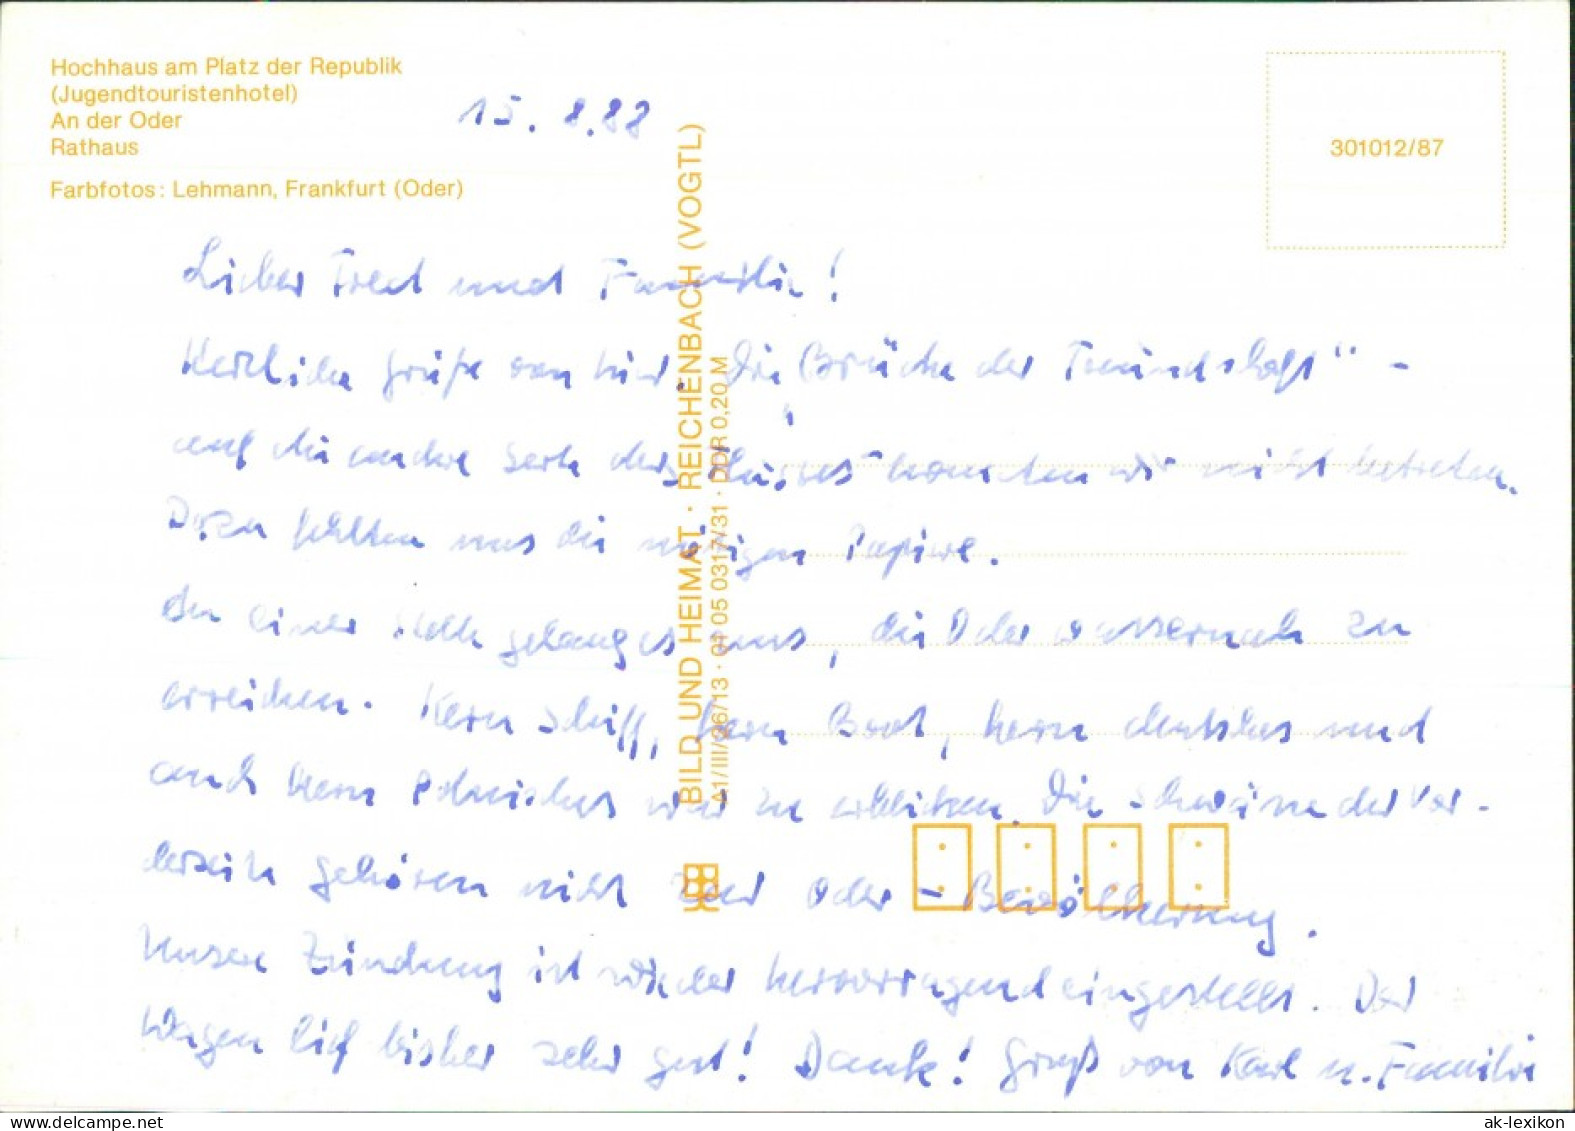 Hochhaus am Platz der Republik
(Jugendtouristenhotel)
An der Oder
Rathaus
Farbfotos: Lehmann, Frankfurt (Oder)
15. 8.88
301012/87
Lieber Fred und Familie!
Herzliche Grüße von hier. Die „Brücke der Freundschaft" -
auf die andre Seite des Flusses konnten wir nicht betreten.
Dazu fehlten uns die nötigen Papiere.
An einer Stelle gelang es uns, die Oder wassernah zu
erreichen. Kein Schiff, kein Boot, kein deutsches und
auch kein Polnisches war zu erblicken. Die Schwäne der Vor-
derseite gehören nicht zur Oder-Bevölkerung.
Unsere Zündung ist wieder hervorragend eingestellt. Der
Wagen lief bisher sehr gut! Danke! Gruß von Karl u. Familie
BILD UND HEIMAT · REICHENBACH (VOGTL)
A1/III/26/13 · 01 05 0317/31 · DDR 0,20 M
ak-ansichtskarten.net
ak-lexikon